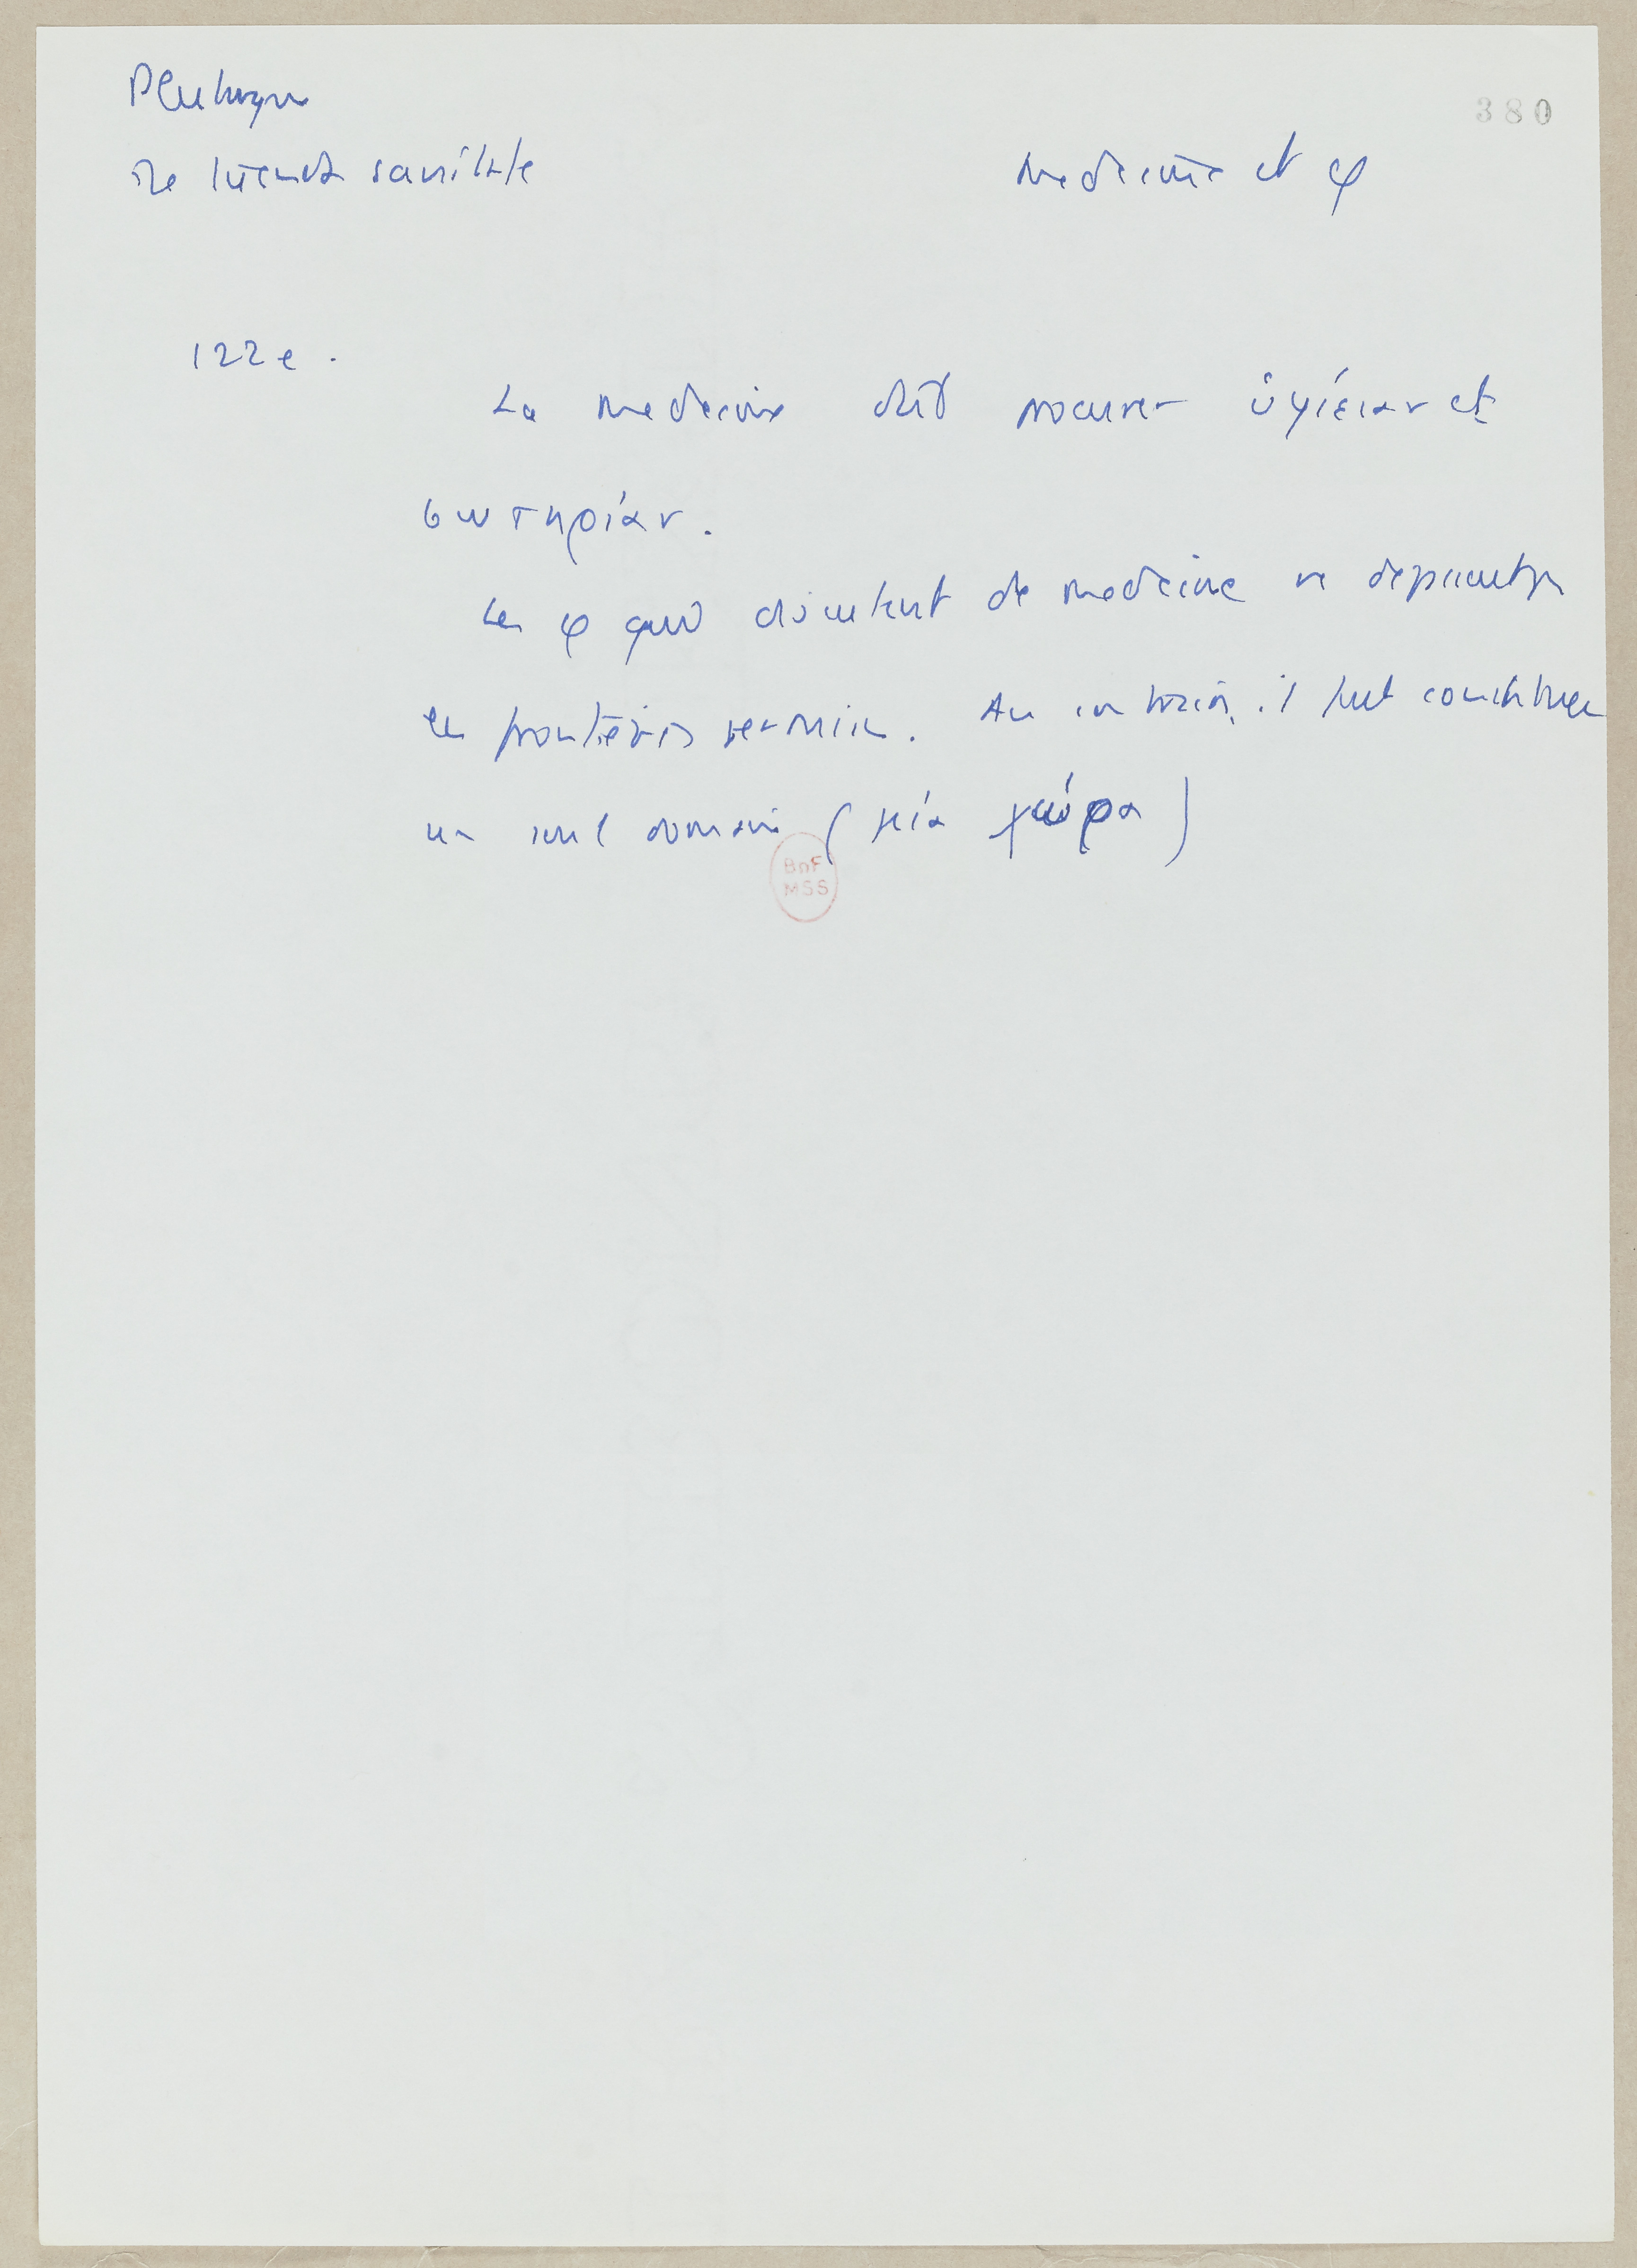 Plutarque
380
De tuenda sanitate
Medecine et φ
122 e.
La medecine doit procurer ὑγίειαν et
σωτηρίαν.
Les φ qui discutent de medecine ne depassent pas
les frontières permises. Au contraire, il faut constituer
un seul domaine (μία χώρα)
BnF
MSS